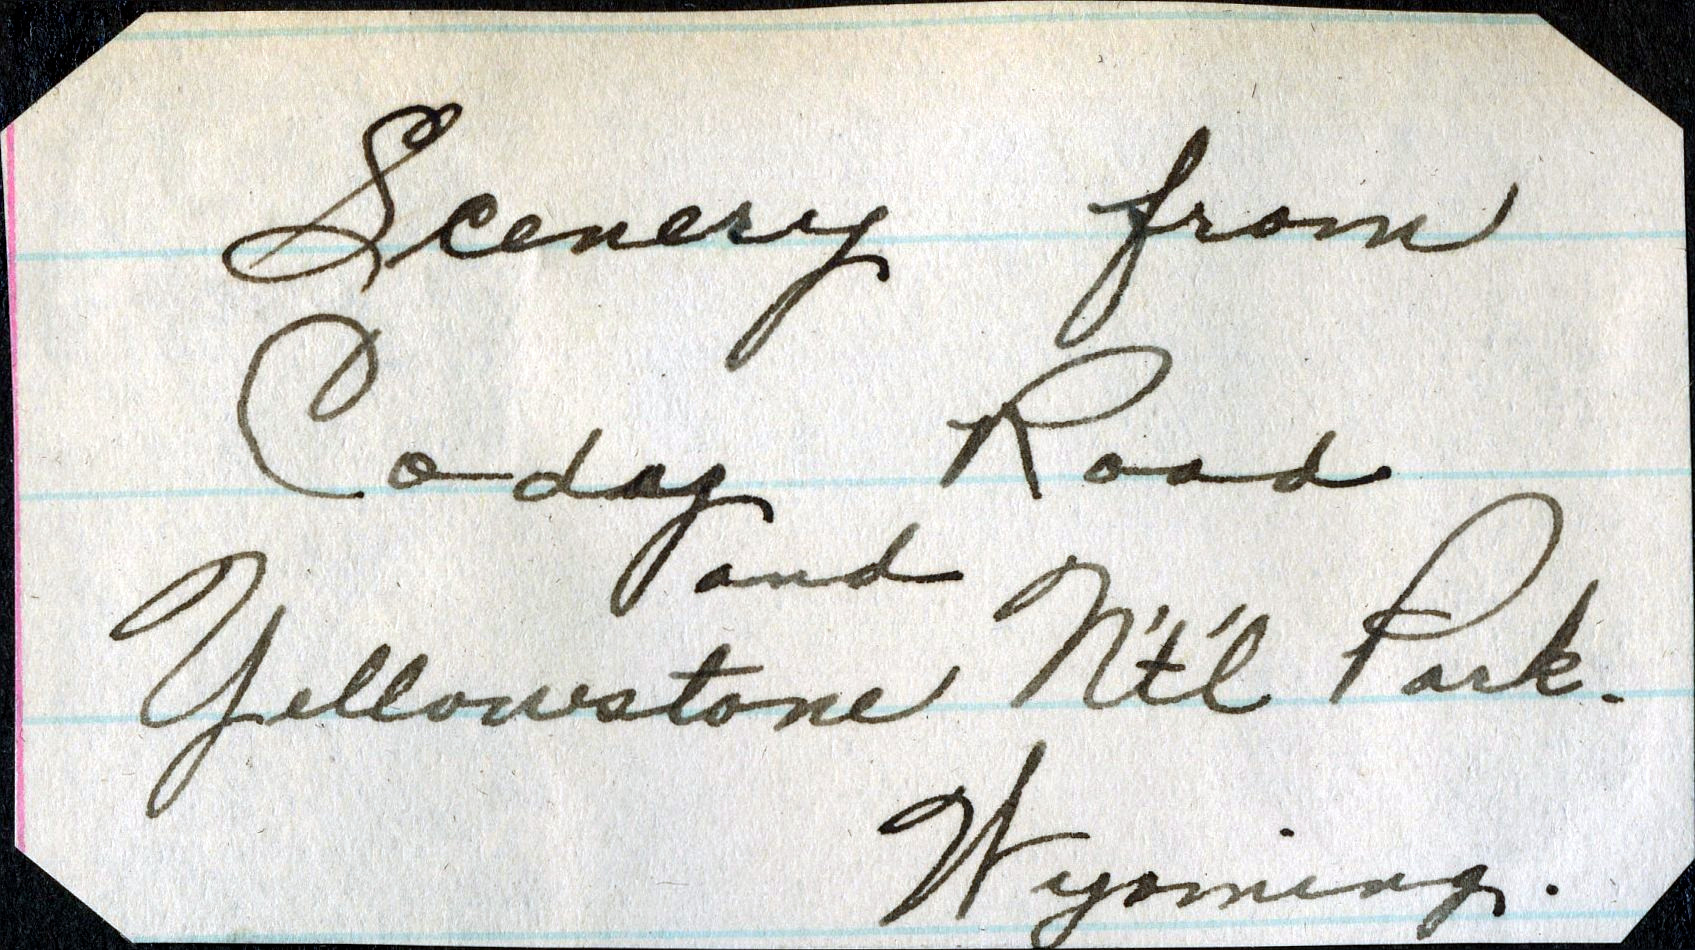 Scenery from
Cody Road
and
Yellowstone N't'l Park.
Wyoming.